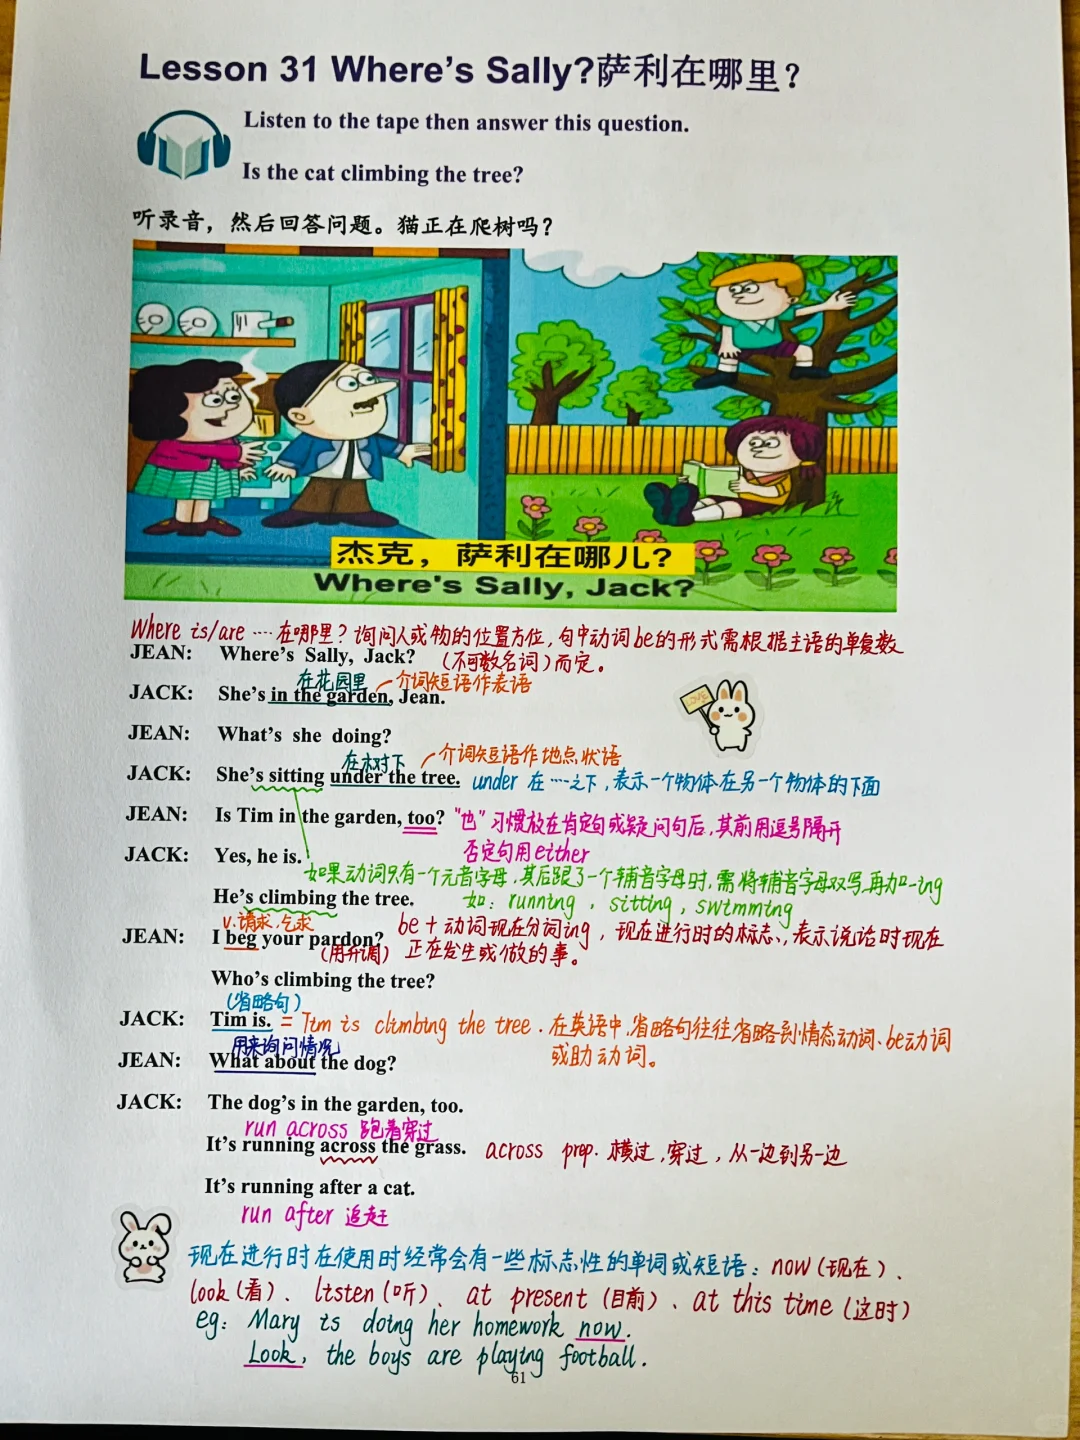 Lesson 31 Where's Sally?萨利在哪里？
Listen to the tape then answer this question.
Is the cat climbing the tree?
听录音，然后回答问题。猫正在爬树吗？
杰克，萨利在哪儿？
Where's Sally, Jack?
Where is/are ····在哪里？询问人或物的位置方位，句中动词be的形式需根据主语的单复数
JEAN: Where's Sally, Jack? （不可数名词）而定。
在花园里 介词短语作表语
JACK: She's in the garden, Jean.
LOVE
JEAN: What's she doing?
在树下 介词短语作地点状语
JACK: She's sitting under the tree. under 在····之下，表示一个物体在另一个物体的下面
JEAN: Is Tim in the garden, too? "也"习惯放在肯定句或疑问句后，其前用逗号隔开
否定句用either
JACK: Yes, he is.
如果动词只有一个元音字母，其后跟了一个辅音字母时，需将辅音字母双写，再加-ing
He's climbing the tree. 如：running，sitting，swimming
v.请求，乞求 be＋动词现在分词ing，现在进行时的标志，表示说话时现在
JEAN: I beg your pardon?
（用升调） 正在发生或做的事。
Who's climbing the tree?
（省略句）
JACK: Tim is. = Tim is climbing the tree. 在英语中，省略句往往省略到情态动词、be动词
用来询问情况 或助动词。
JEAN: What about the dog?
JACK: The dog's in the garden, too.
run across 跑着穿过
It's running across the grass. across prep. 横过，穿过，从一边到另一边
It's running after a cat.
run after 追赶
现在进行时在使用时经常会有一些标志性的单词或短语：now（现在）、
look（看）、listen（听）、at present（目前）、at this time（这时）
eg: Mary is doing her homework now.
Look, the boys are playing football.
61